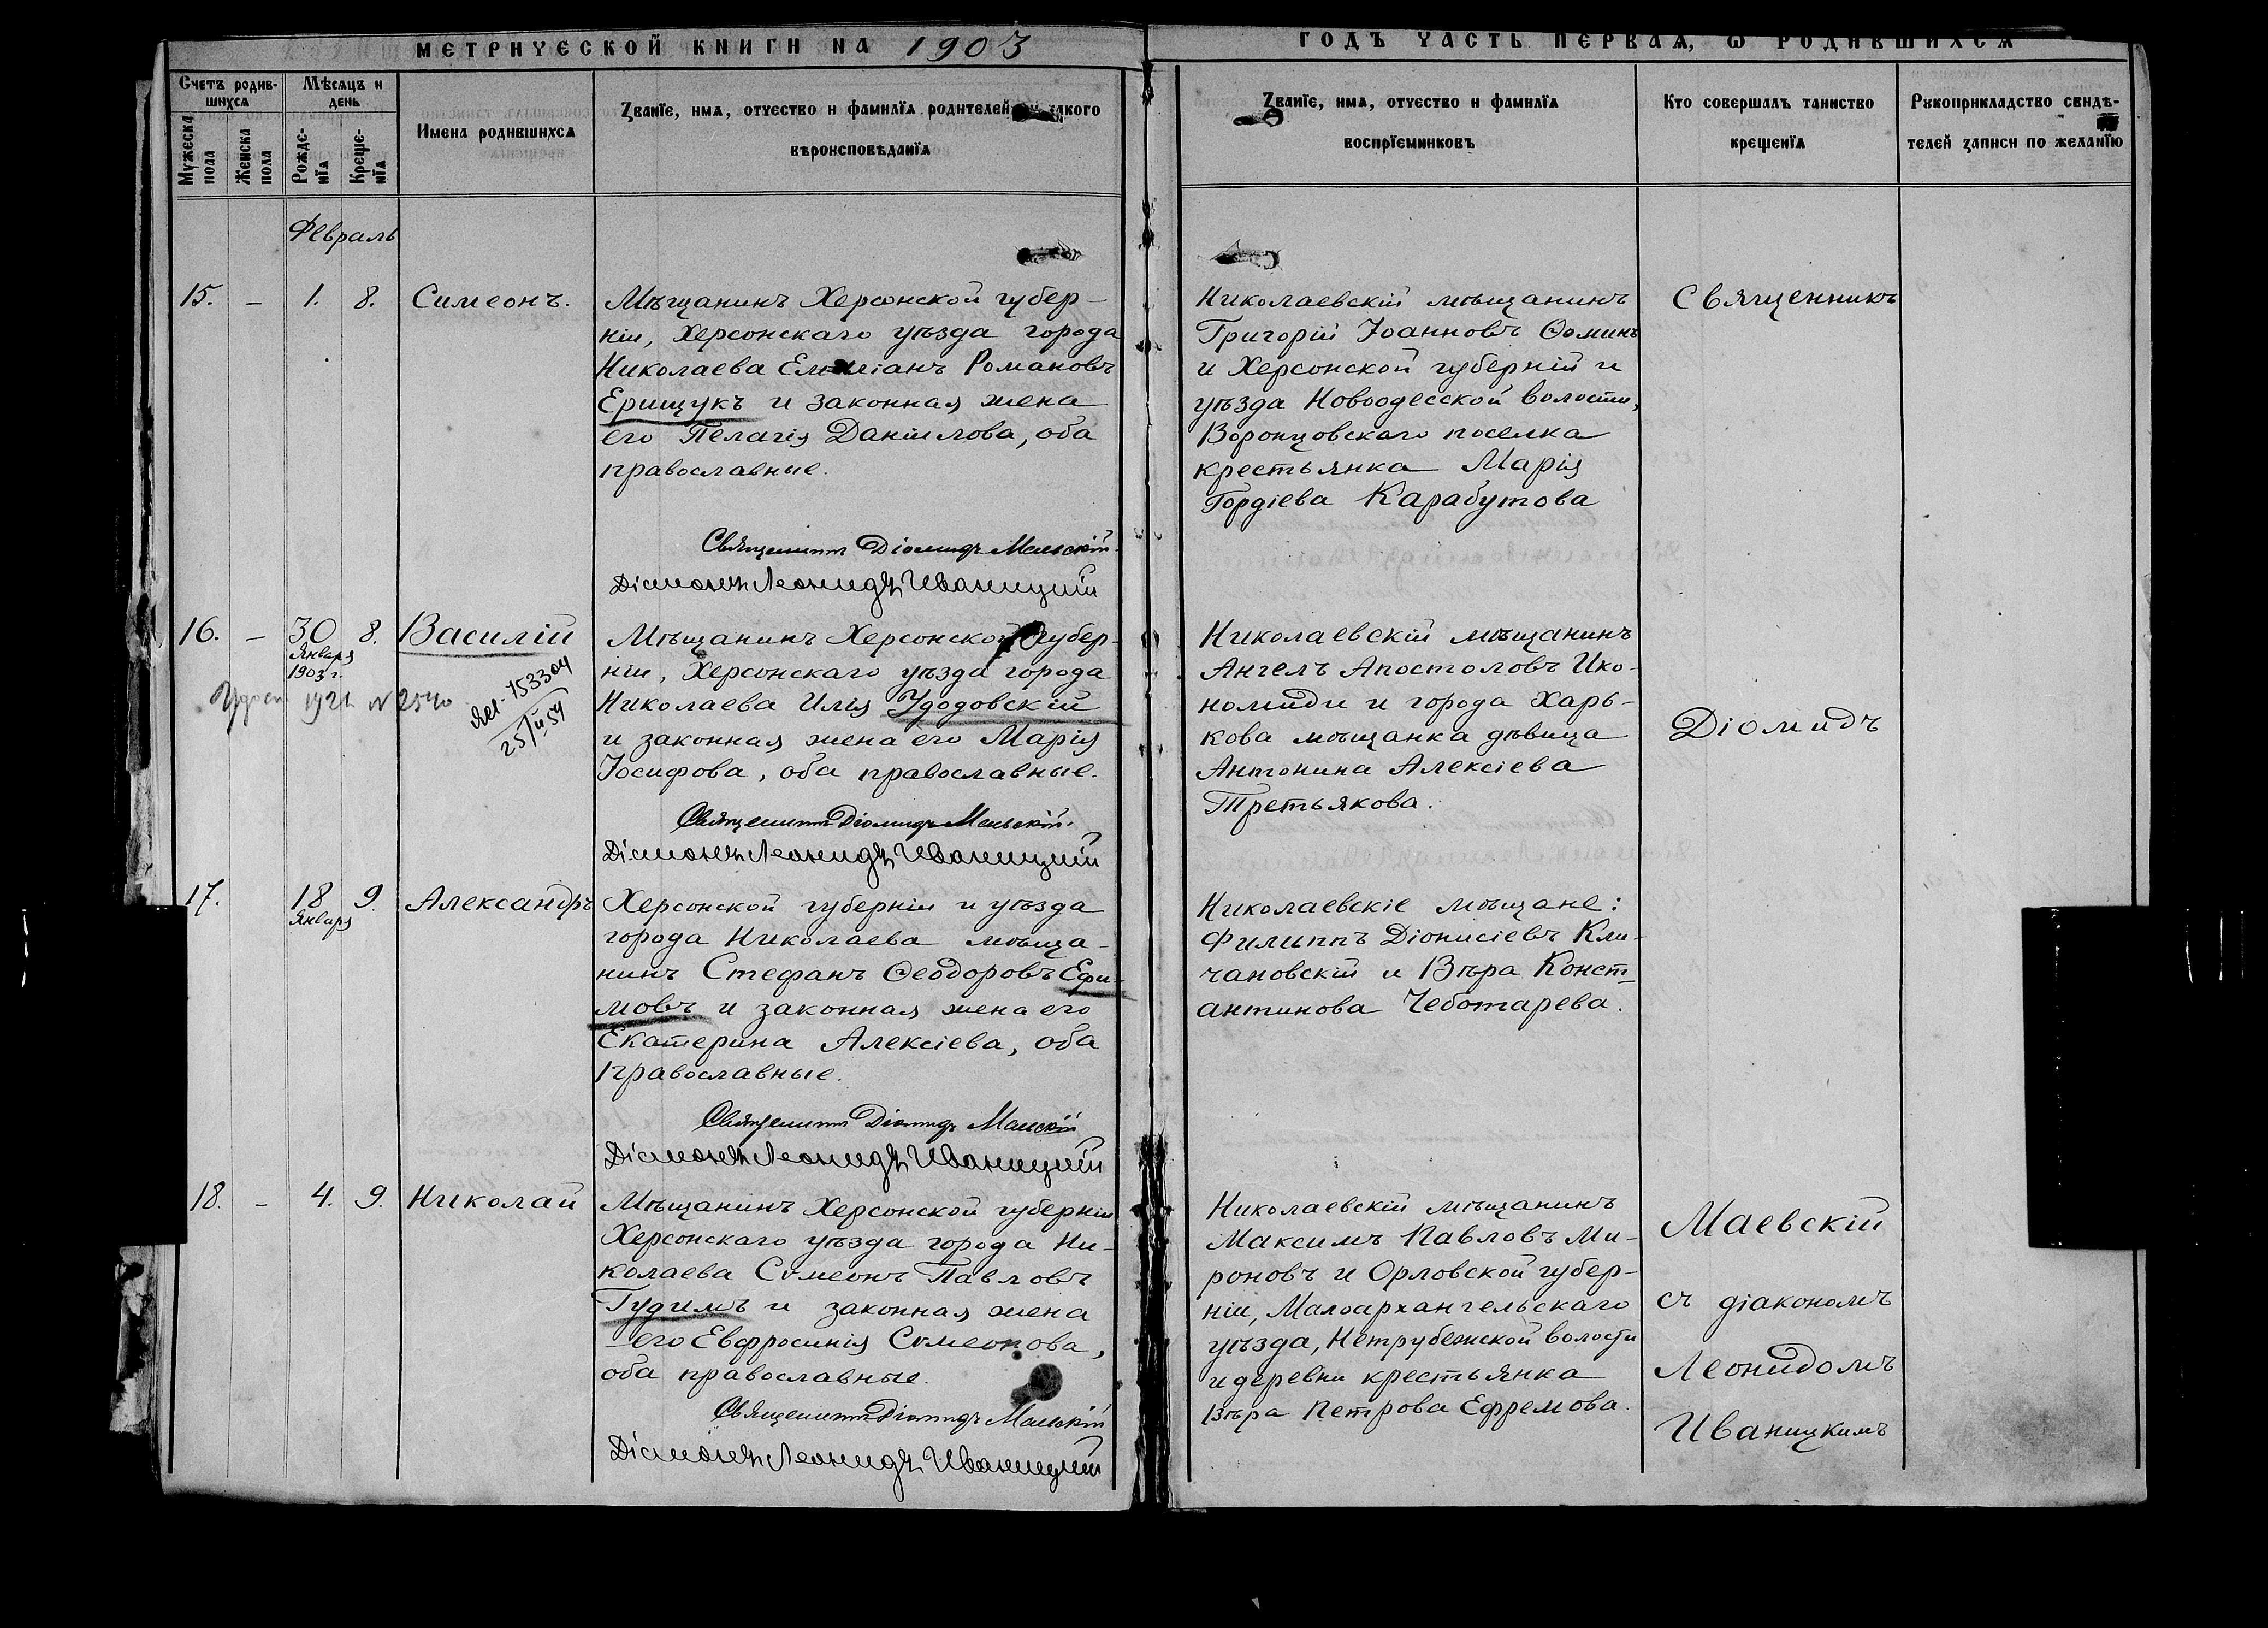 МЕТРИЧЕСКОЙ КНИГИ НА 1903
ГОДЪ ЧАСТЬ ПЕРВАЯ, Ѡ РОДИВШИХСЯ
Счетъ родив-
шихся
Мѣсяцъ и
день
Мужеска
пола
Женска
пола
Рожде-
нїя
Креще-
нїя
Имена родившихся
Званїе, имя, отчество и фамилїя родителей
вѣроисповѣданїя
Званїе, имя, отчество и фамилїя
воспрїемниковъ
Кто совершалъ таинство
крещенїя
Рукоприкладство свидѣ-
телей записи по желанїю
Февраль
15. – 1. 8. Симеонъ.
Мѣщанинъ Херсонской губер-
ніи, Херсонскаго уѣзда города
Николаева Емиліанъ Романовъ
Ерищукъ и законная жена
его Пелагія Даніилова, оба
православные.
Священникъ Діомидъ Маевскій
Діаконъ Леонидъ Иваницкій
Николаевскій мѣщанинъ
Григорій Іоанновъ Ѳоминъ
и Херсонской губерній и
уѣзда Новоодесской волости,
Воронцовскаго поселка
крестьянка Марія
Гордіева Карабутова
16. – 30 8. Василій
Января
1903 г.
1921 N 2540
153304
Мѣщанинъ Херсонской губер-
ніи, Херсонскаго уѣзда города
Николаева Илія Удодовскій
и законная жена его Марія
Іосифова, оба православные.
Священникъ Діомидъ Маевскій.
Діаконъ Леонидъ Иваницкій
Николаевскій мѣщанинъ
Ангелъ Апостоловъ Ико-
номиди и города Харь-
кова мѣщанка дѣвица
Антонина Алексіева
Третьякова.
17. 18 9. Александръ
Января
Херсонской губерніи и уѣзда
города Николаева мѣща-
нинъ Стефанъ Ѳеодоровъ Ефи-
мовъ и законная жена его
Екатерина Алексіева, оба
православные.
Священникъ Діомидъ Маевскій
Діаконъ Леонидъ Иваницкій
Николаевскіе мѣщане:
Филиппъ Діонисіевъ Кли-
чановскій и Вѣра Конст-
антинова Чеботарева.
18. – 4. 9. Николай
Мѣщанинъ Херсонской губерніи
Херсонскаго уѣзда города Ни-
колаева Сѵмеонъ Павловъ
Гудимъ и законная жена
его Евфросинія Сѵмеонова,
оба православные.
Священникъ Діомидъ Маевскій
Діаконъ Леонидъ Иваницкій
Николаевскій мѣщанинъ
Максимъ Павловъ Ми-
роновъ и Орловской губер-
ніи, Малоархангельскаго
уѣзда, Нетрубежской волости
и деревни крестьянка
Вѣра Петрова Ефремова.
Священникъ
Діомидъ
Маевскій
съ діакономъ
Леонидомъ
Иваницкимъ